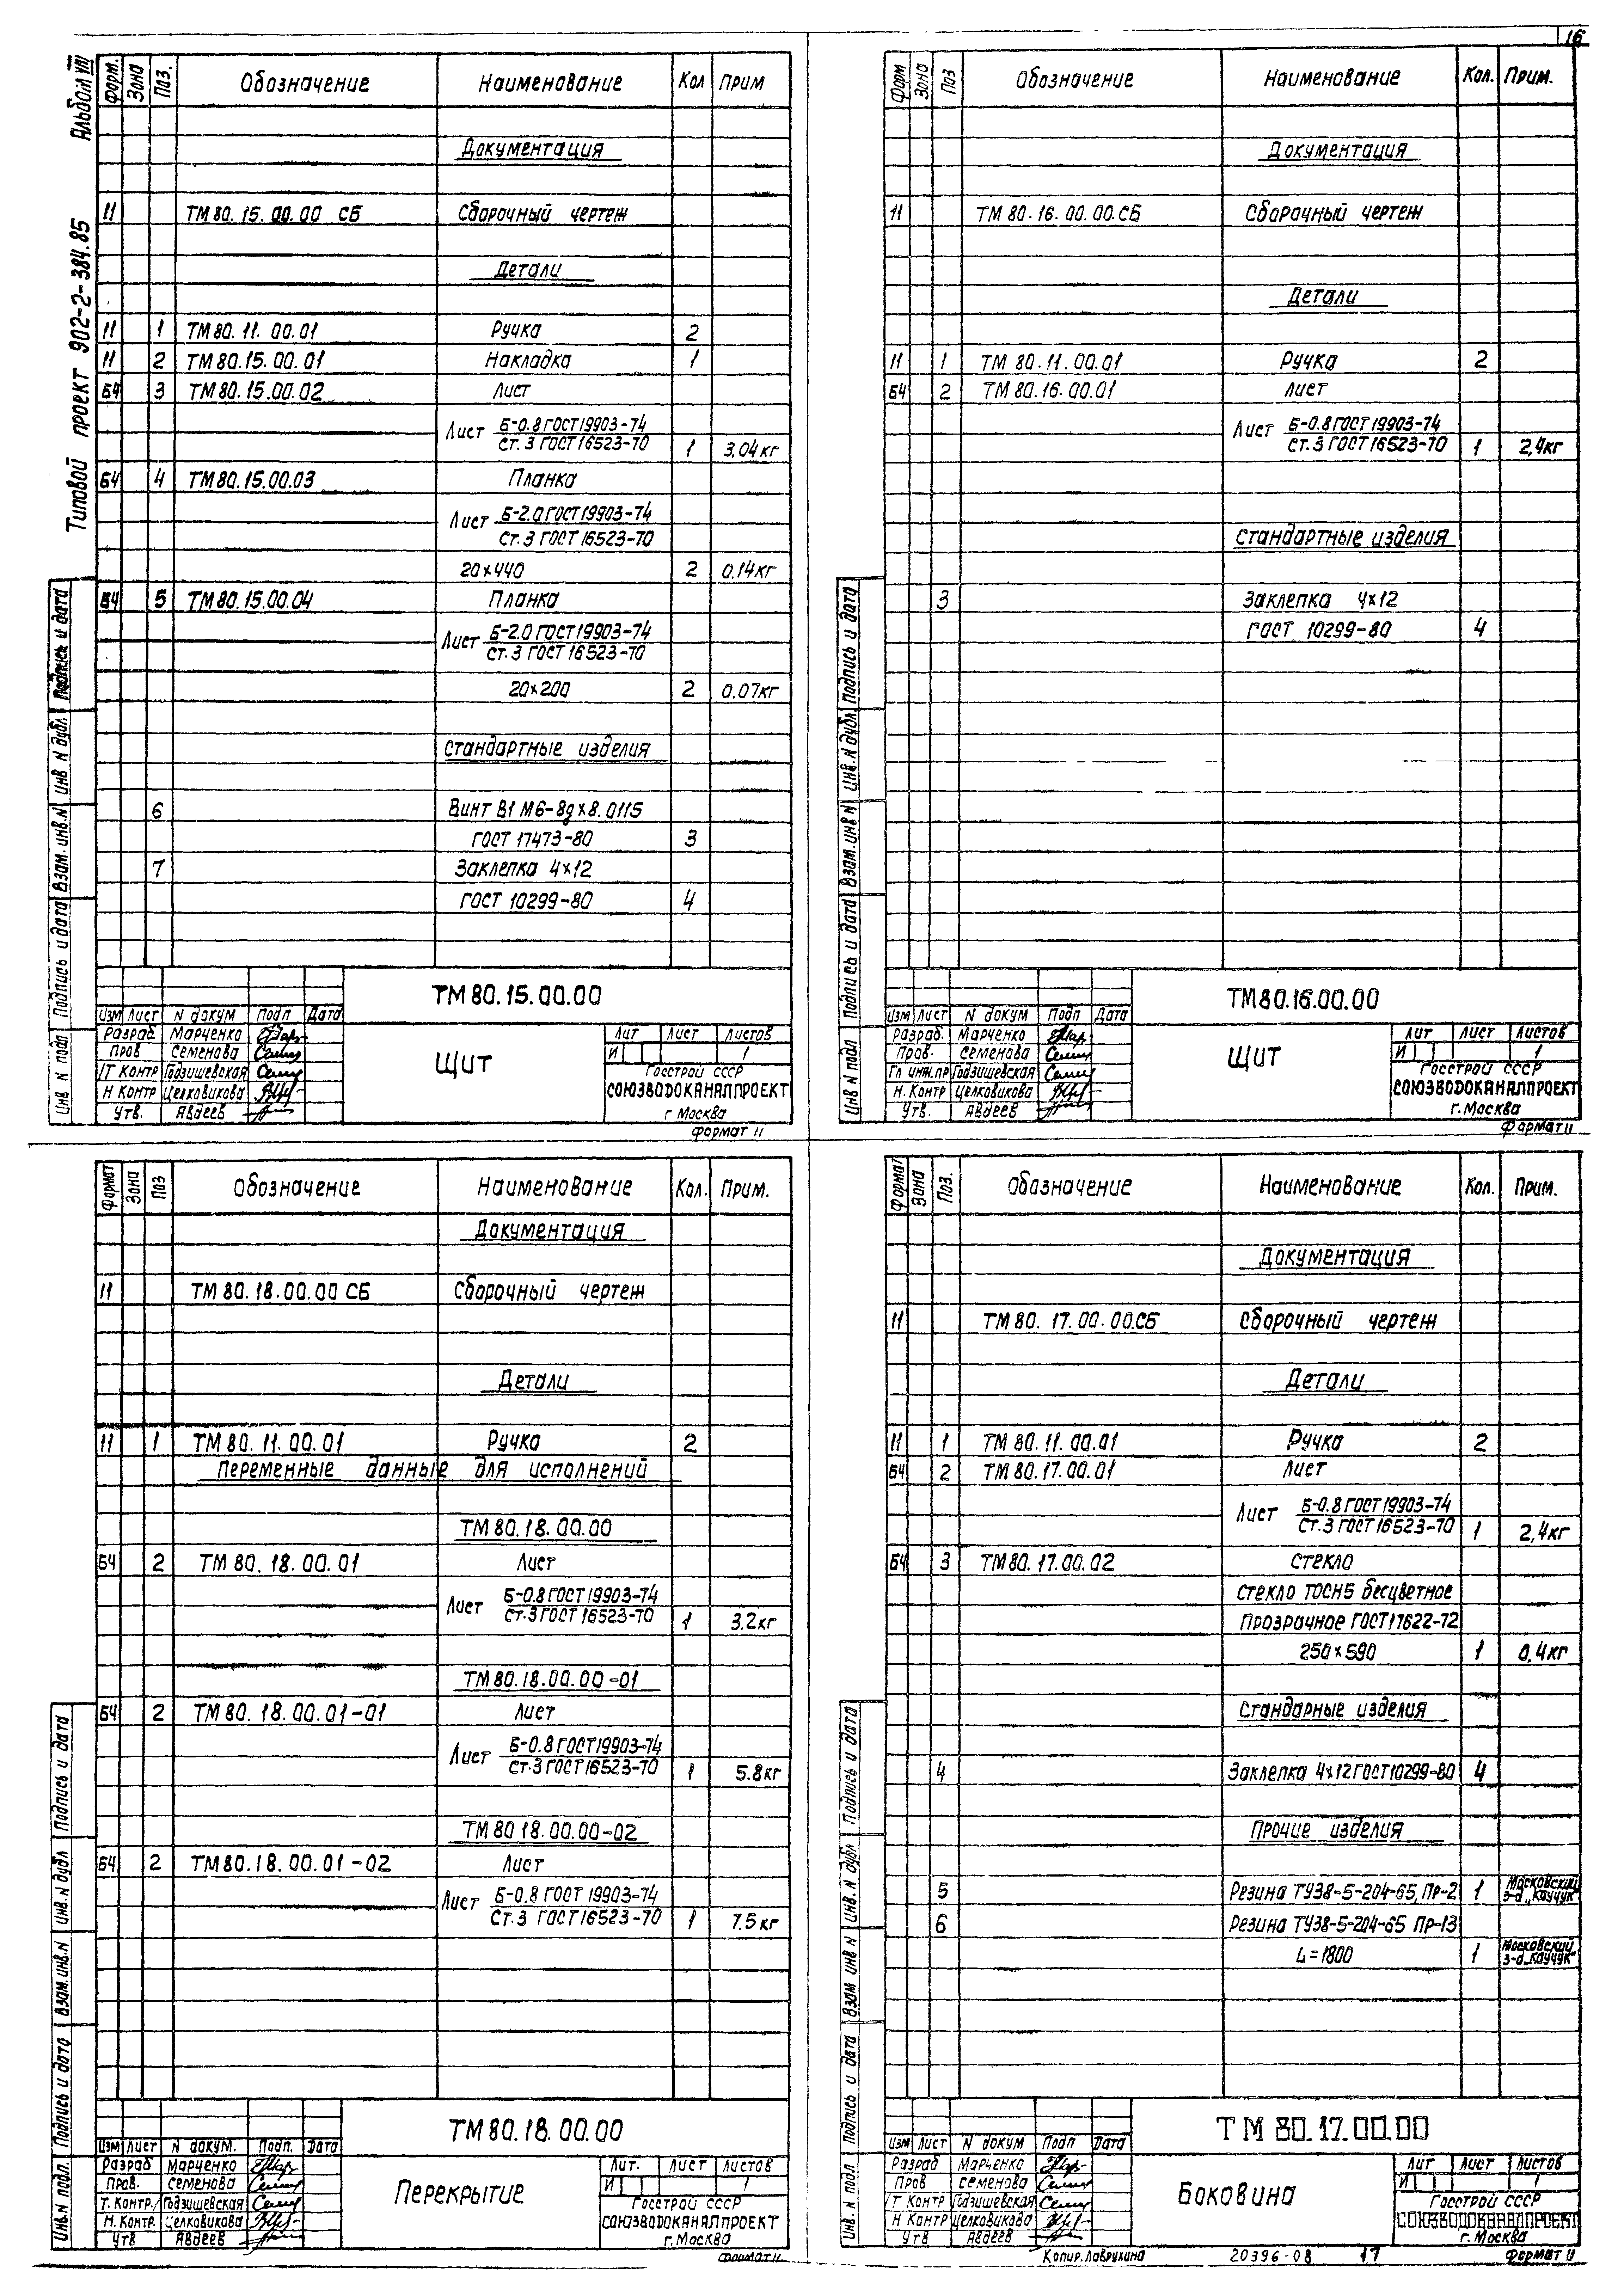 16
Альбом VIII
Типовой проект 902-2-384.85
Форм. Зона Поз. Обозначение Наименование Кол Прим
Документация
11 ТМ80.15.00.00 СБ Сборочный чертеж
Детали
11 1 ТМ80.11.00.01 Ручка 2
11 2 ТМ80.15.00.01 Накладка 1
БЧ 3 ТМ80.15.00.02 Лист
Лист Б-0.8 ГОСТ 19903-74
Ст.3 ГОСТ 16523-70 1 3.04кг
БЧ 4 ТМ80.15.00.03 Планка
Лист Б-2.0 ГОСТ 19903-74
Ст.3 ГОСТ 16523-70
20×440 2 0.14кг
БЧ 5 ТМ80.15.00.04 Планка
Лист Б-2.0 ГОСТ 19903-74
Ст.3 ГОСТ 16523-70
20×200 2 0.07кг
Стандартные изделия
6 Винт В1 М6-8g×8.0115
ГОСТ 17473-80 3
7 Заклепка 4×12
ГОСТ 10299-80 4
Инв N подл Подпись и дата Взам. инв.N Инв N дубл Подпись и дата
ТМ80.15.00.00
Изм Лист N докум Подп Дата
Разраб Марченко
Пров Семенова
Т Контр Годзишевская
Н Контр Целковикова
Утв. Авдеев
Щит
Лит Лист Листов
И 1
Госстрой СССР
СОЮЗВОДОКАНАЛПРОЕКТ
г Москва
Формат 11
Форм Зона Поз Обозначение Наименование Кол. Прим.
Документация
11 ТМ 80.16.00.00.СБ Сборочный чертеж
Детали
11 1 ТМ 80.11.00.01 Ручка 2
БЧ 2 ТМ 80.16.00.01 Лист
Лист Б-0.8 ГОСТ 19903-74
Ст.3 ГОСТ 16523-70 1 2,4кг
Стандартные изделия
3 Заклепка 4×12
ГОСТ 10299-80 4
Инв N подл Подпись и дата Взам.инв N Инв.N дубл Подпись и дата
ТМ80.16.00.00
Изм Лист N докум Подп Дата
Разраб. Марченко
Пров. Семенова
Гл инж.пр Годзишевская
Н.Контр Целковикова
Утв. Авдеев
Щит
Лит Лист Листов
И 1
Госстрой СССР
СОЮЗВОДОКАНАЛПРОЕКТ
г.Москва
Формат 11
Формат Зона Поз Обозначение Наименование Кол. Прим.
Документация
11 ТМ 80.18.00.00 СБ Сборочный чертеж
Детали
11 1 ТМ 80.11.00.01 Ручка 2
Переменные данные для исполнений
ТМ 80.18.00.00
БЧ 2 ТМ 80.18.00.01 Лист
Лист Б-0.8 ГОСТ 19903-74
Ст.3 ГОСТ 16523-70 1 3.2кг
ТМ80.18.00.00-01
БЧ 2 ТМ 80.18.00.01-01 Лист
Лист Б-0.8 ГОСТ 19903-74
Ст.3 ГОСТ 16523-70 1 5.8кг
ТМ80 18.00.00-02
БЧ 2 ТМ80.18.00.01-02 Лист
Лист Б-0.8 ГОСТ 19903-74
Ст.3 ГОСТ 16523-70 1 7.5кг
Инв.N подл. Подпись и дата Взам.инв.N Инв.N дубл Подпись и дата
ТМ80.18.00.00
Изм Лист N докум. Подп. Дата
Разраб Марченко
Пров. Семенова
Т.Контр. Годзишевская
Н.Контр. Целковикова
Утв Авдеев
Перекрытие
Лит. Лист Листов
И 1
Госстрой СССР
СОЮЗВОДОКАНАЛПРОЕКТ
г.Москва
Формат 11
Формат Зона Поз. Обозначение Наименование Кол. Прим.
Документация
11 ТМ 80.17.00.00.СБ Сборочный чертеж
Детали
11 1 ТМ 80.11.00.01 Ручка 2
БЧ 2 ТМ80.17.00.01 Лист
Лист Б-0.8 ГОСТ 19903-74
Ст.3 ГОСТ 16523-70 1 2,4кг
БЧ 3 ТМ80.17.00.02 Стекло
Стекло ТОСН5 бесцветное
Прозрачное ГОСТ 17622-72
250×590 1 0,4кг
Стандарные изделия
4 Заклепка 4×12 ГОСТ 10299-80 4
Прочие изделия
5 Резина ТУ38-5-204-65, Пр-2 1 Московский з-д „Каучук"
6 Резина ТУ38-5-204-65 Пр-13
L=1800 1 Московский з-д „Каучук"
Инв.N подл Подпись и дата Взам инв N Инв.N дубл Подпись и дата
ТМ 80.17.00.00
Изм Лист N докум Подп Дата
Разраб Марченко
Пров Семенова
Т Контр Годзишевская
Н Контр Целковикова
Утв Авдеев
Боковина
Лит Лист Листов
И 1
Госстрой СССР
СОЮЗВОДОКАНАЛПРОЕКТ
г.Москва
Копир.Лаврухина 20396-08 17 Формат 11